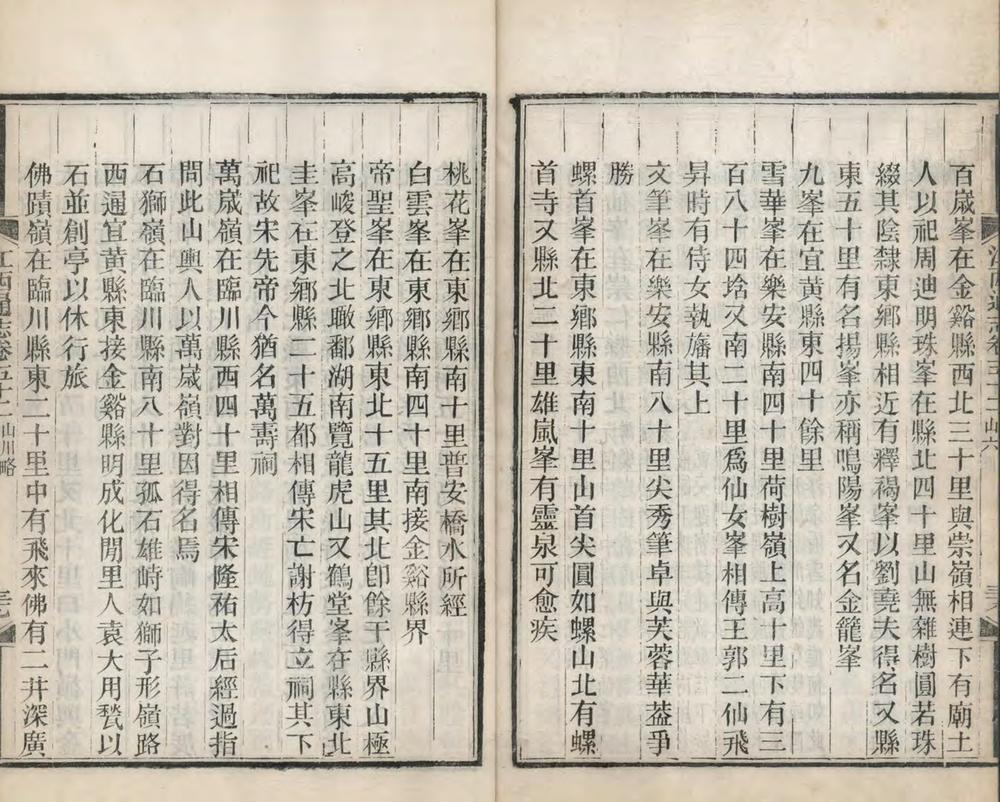 百嵗峯在金谿縣西北三十里與崇嶺相連下有廟土
人以祀周迪明珠峯在縣北四十里山無雜樹圓若珠
綴其陰隸東鄉縣相近有釋褐峯以劉堯夫得名又縣
東五十里有名揚峯亦稱鳴陽峯又名金籠峯
九峯在宜黄縣東四十餘里
雪華峯在樂安縣南四十里荷樹嶺上高十里下有三
百八十四捨又南二十里爲仙女峯相傳王郭二仙飛
昇時有侍女執旛其上
文筆峯在樂安縣南八十里尖秀筆卓與芙蓉華葢爭
勝
螺首峯在東鄉縣東南十里山首尖圓如螺山北有螺
首寺又縣北二十里雄嵐峯有靈泉可愈疾
桃花峯在東鄉縣南十里普安橋水所經
白雲峯在東鄉縣南四十里南接金谿縣界
帝聖峯在東鄉縣東北十五里其北卽餘干縣界山極
高峻登之北瞰鄱湖南覽龍虎山又鶴堂峯在縣東北
圭峯在東鄉縣二十五都相傳宋亡謝枋得立祠其下
祀故宋先帝今猶名萬壽祠
萬嵗嶺在臨川縣西四十里相傳宋隆祐太后經過指
問此山輿人以萬嵗嶺對因得名焉
石獅嶺在臨川縣南八十里孤石雄峙如獅子形嶺路
西通宜黄縣東接金谿縣明成化閒里人袁大用甃以
石並創亭以休行旅
佛蹟嶺在臨川縣東二十里中有飛來佛有二井深廣
江西通志卷五十二 山川略